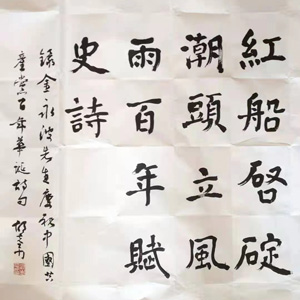 紅船啓碇
潮頭立風
雨百年賦
史詩
錄金永波先生慶祝中國共
產黨百年華誕詩句